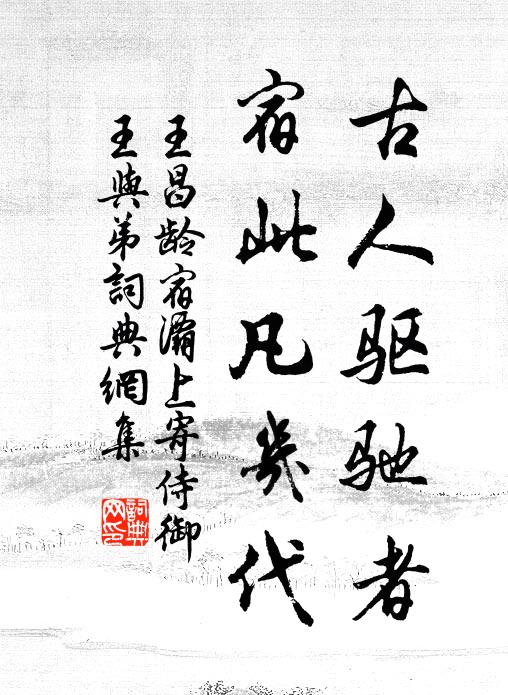 古人驱驰者
宿此凡幾代
王昌龄宿灞上寄侍御
玙弟詞典網集
詞典
网印